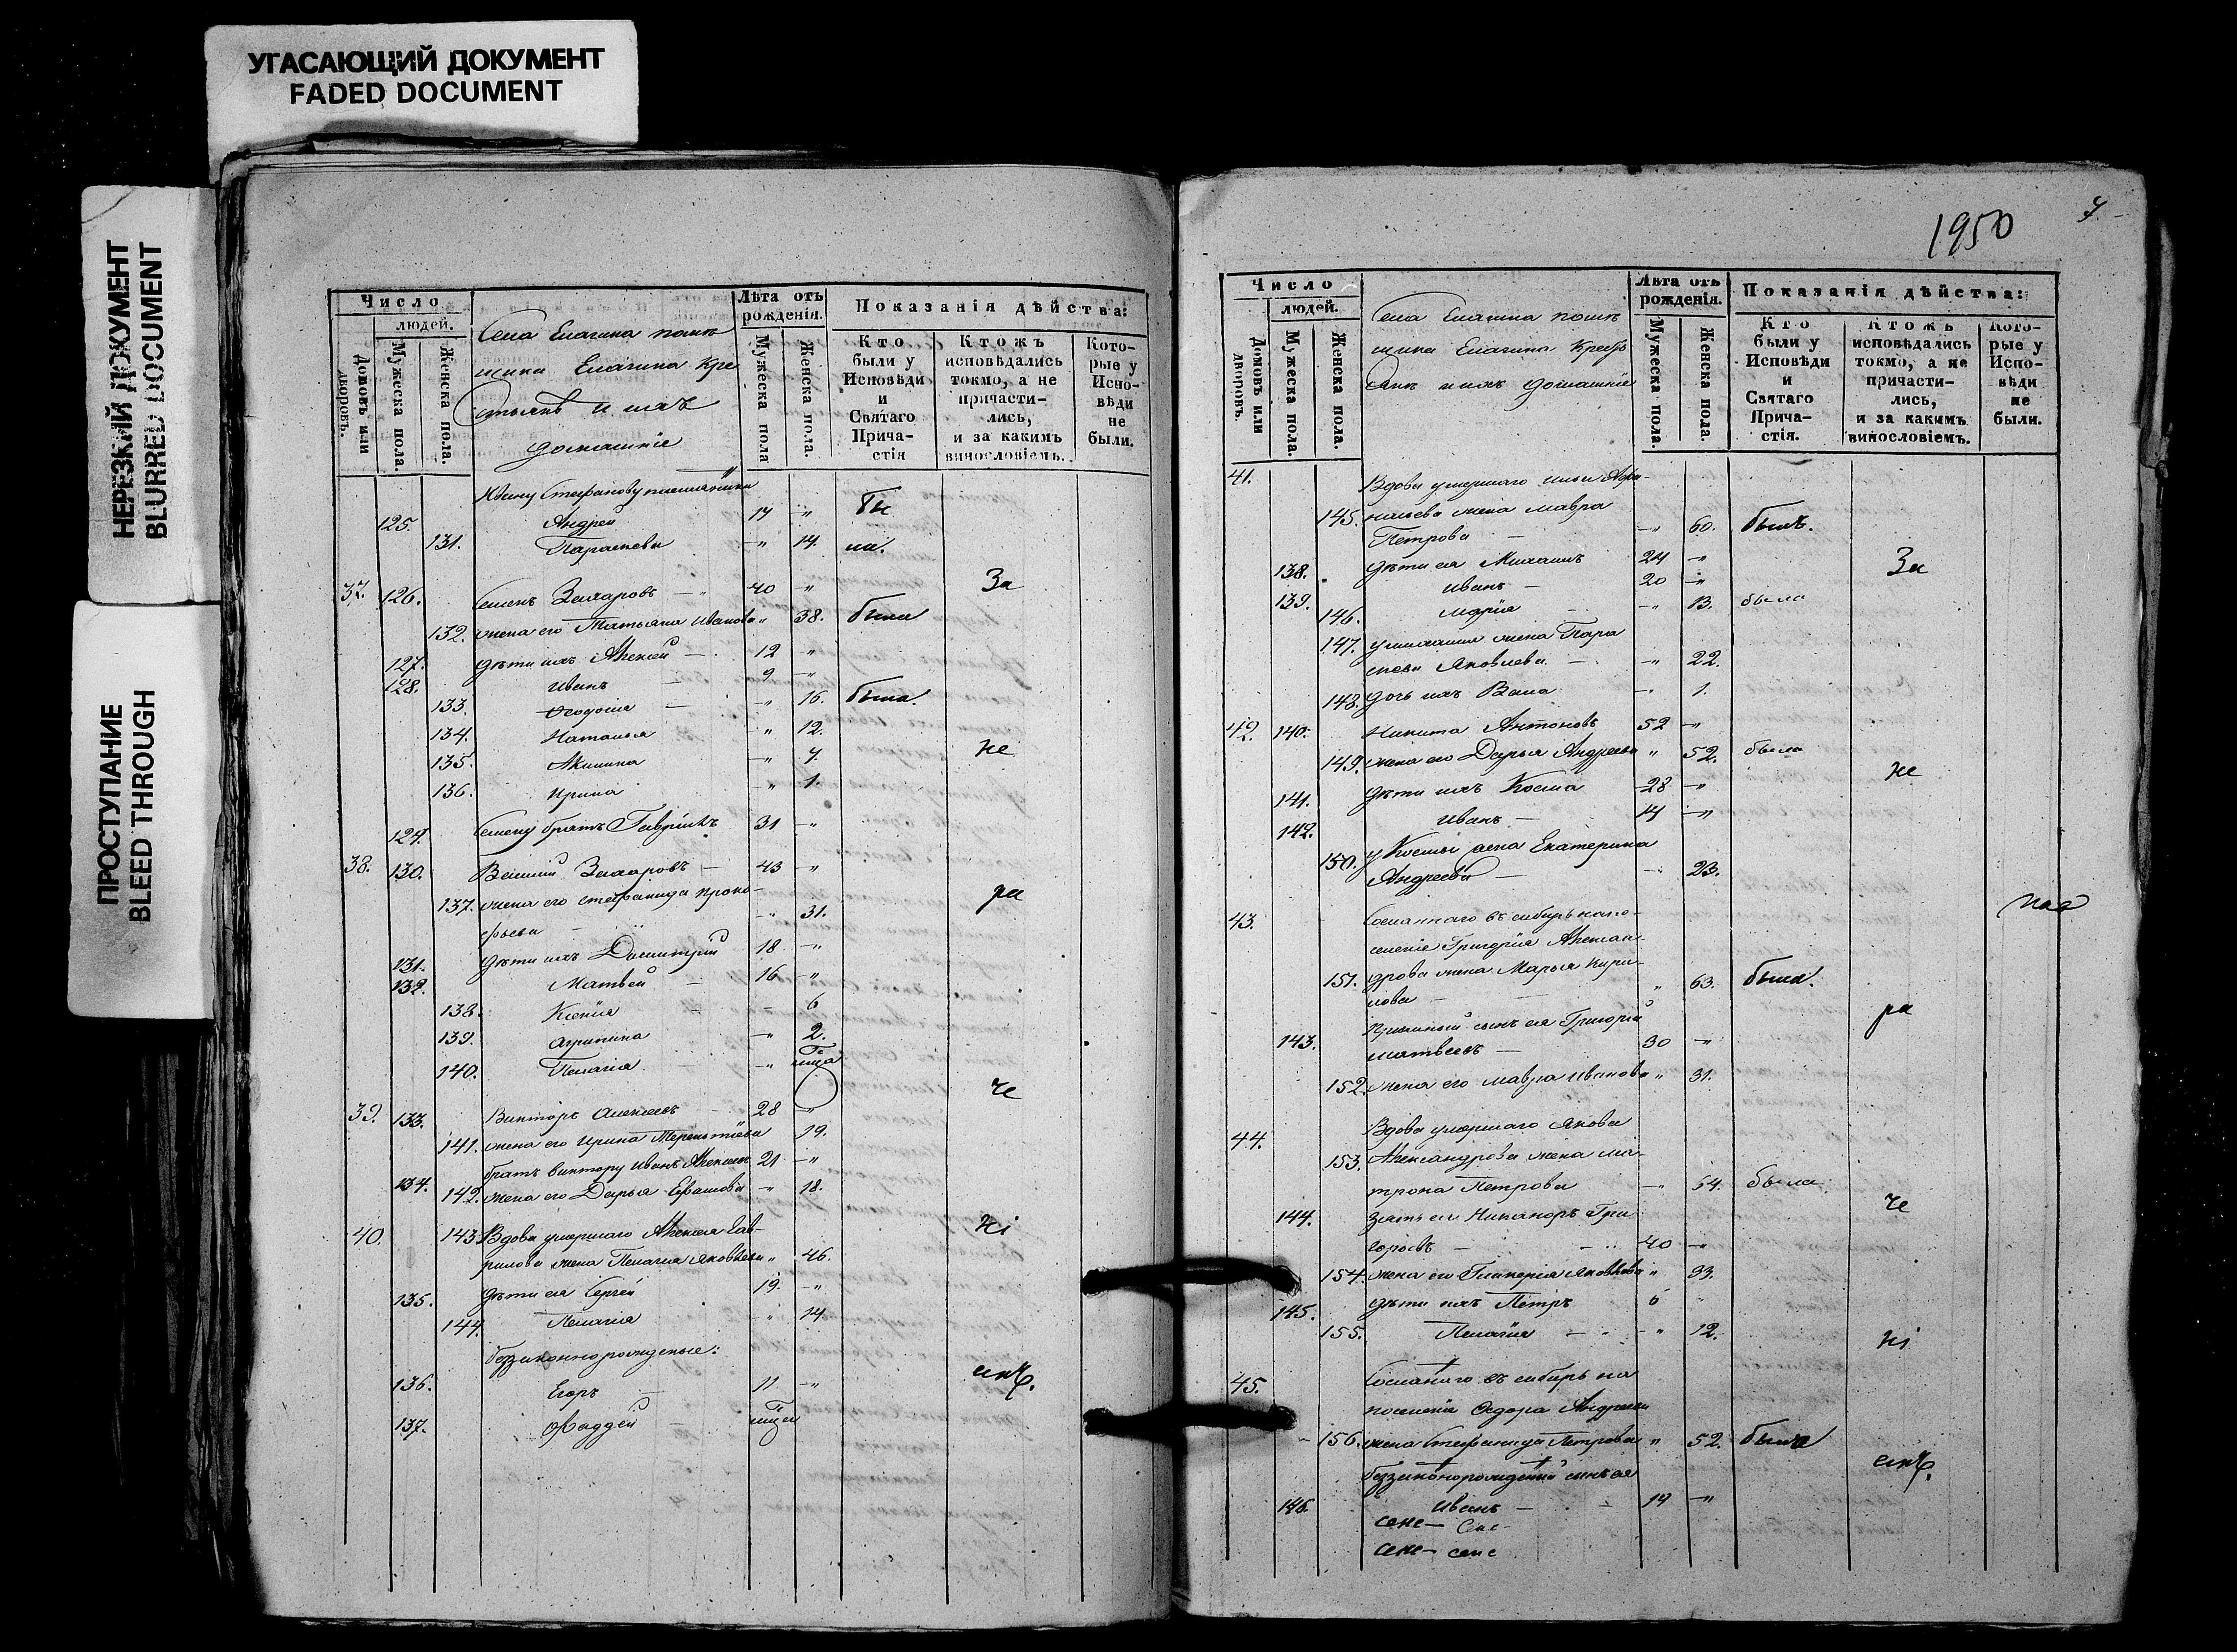 УГАСАЮЩИЙ ДОКУМЕНТ
FADED DOCUMENT
НЕРЕЗКИЙ ДОКУМЕНТ
BLURRED DOCUMENT
ПРОСТУПАНИЕ
BLEED THROUGH
Число
людей.
Домовъ или дворовъ.
Мужеска пола.
Женска пола.
Села Елагина помѣ
щика Елагина Кре
стьянѣ и ихъ
домашніе
Лѣта отъ рожденія.
Мужеска пола
Женска пола.
Показанія дѣйства:
Кто были у Исповѣди и Святаго Прича-стія
Ктожъ исповѣдались токмо, а не причасти-лись, и за какимъ винословіемъ.
Кото-рые у Испо-вѣди не были.
Ивану Стефанову племянники
125. Андрей 17 " Бы
131. Параскева " 14. ла.
За
37. 126. Семенъ Захаровъ 40 "
132. жена его Татьяна Иванова " 38. была
127. дѣти ихъ Алексей 12 "
128. Иванъ 9 "
133. Феодосия " 16. была.
134. Наталья " 12.
не
135. Акилина " 7.
136. Ирина " 1.
129. Семену братъ Гаврилъ 31 "
38. 130. Захаровъ 43 "
137. жена его Стефанида Проко-
фьева " 31.
ра
131. дѣти ихъ Димитрій 18 "
132. Матвей 16 "
138. Ксенія " 6
139. Агрипина " 2.
140. Пелагія "
че
39. 133. Викторъ Алексеевъ 28 "
141. жена его Ирина Терентіева 19.
134. братъ Виктору Иванъ Алексеевъ 21 "
142. жена его Дарья Ефимова " 18.
ні
40. 143. Вдова умершаго Алексея Гав-
рилова жена Пелагия Яковлева " 46.
135. дѣти ея Сергей 19. "
144. Пелагія " 14
беззаконнорожденые:
136. Егоръ 11 "
137. Фаддей
1950
7.
Число
людей.
Домовъ или дворовъ.
Мужеска пола.
Женска пола.
Села Елагина помѣ
щика Елагина Кресть
янѣ и ихъ домашніе
Лѣта отъ рожденія.
Мужеска пола.
Женска пола.
Показанія дѣйства:
Кто были у Исповѣди и Святаго Прича-стія.
Ктожъ исповѣдались токмо, а не причасти-лись, и за какимъ винословіемъ.
Кото-рые у Испо-вѣди не были.
41. Вдова умершаго
145. жена Мавра
Петрова " 60.
138. дѣти ея Михаилъ 24 "
За
139. Иванъ 20 "
146. Марія " 13. была
147. у Михаила жена Пара
скева Яковлева " 22.
148. дочь ихъ " 1.
42. 140. Никита Антоновъ 52 "
149. жена его Дарья Андреева " 52. была
не
141. дѣти ихъ Косма 28 "
142. Иванъ 14 "
150. у Космы жена Екатерина
Андреева " 23.
43. Сосланнаго въ сибирь на по-
селеніе Григорія Алексан-
151. дрова жена Марья Кири-
лова " 63. была.
ра
143. сынъ ея Григорій
Матвеевъ 30 "
152. жена его Мавра Иванова " 31.
44. Вдова умершаго Якова
153. Александрова жена Ма-
трона Петрова " 54. была
че
144. зять ея Никаноръ Гри
горьевъ 40 "
154. жена его Гликерія Яковлева " 33.
145. дѣти ихъ Петръ 6 "
155. Пелагія " 12.
ні
45. Сосланнаго въ сибирь на
поселеніе Федора Андреева
156. жена Стефанида Петрова " 52. была
беззаконорожденный сынъ ея
146. Иванъ 14 "